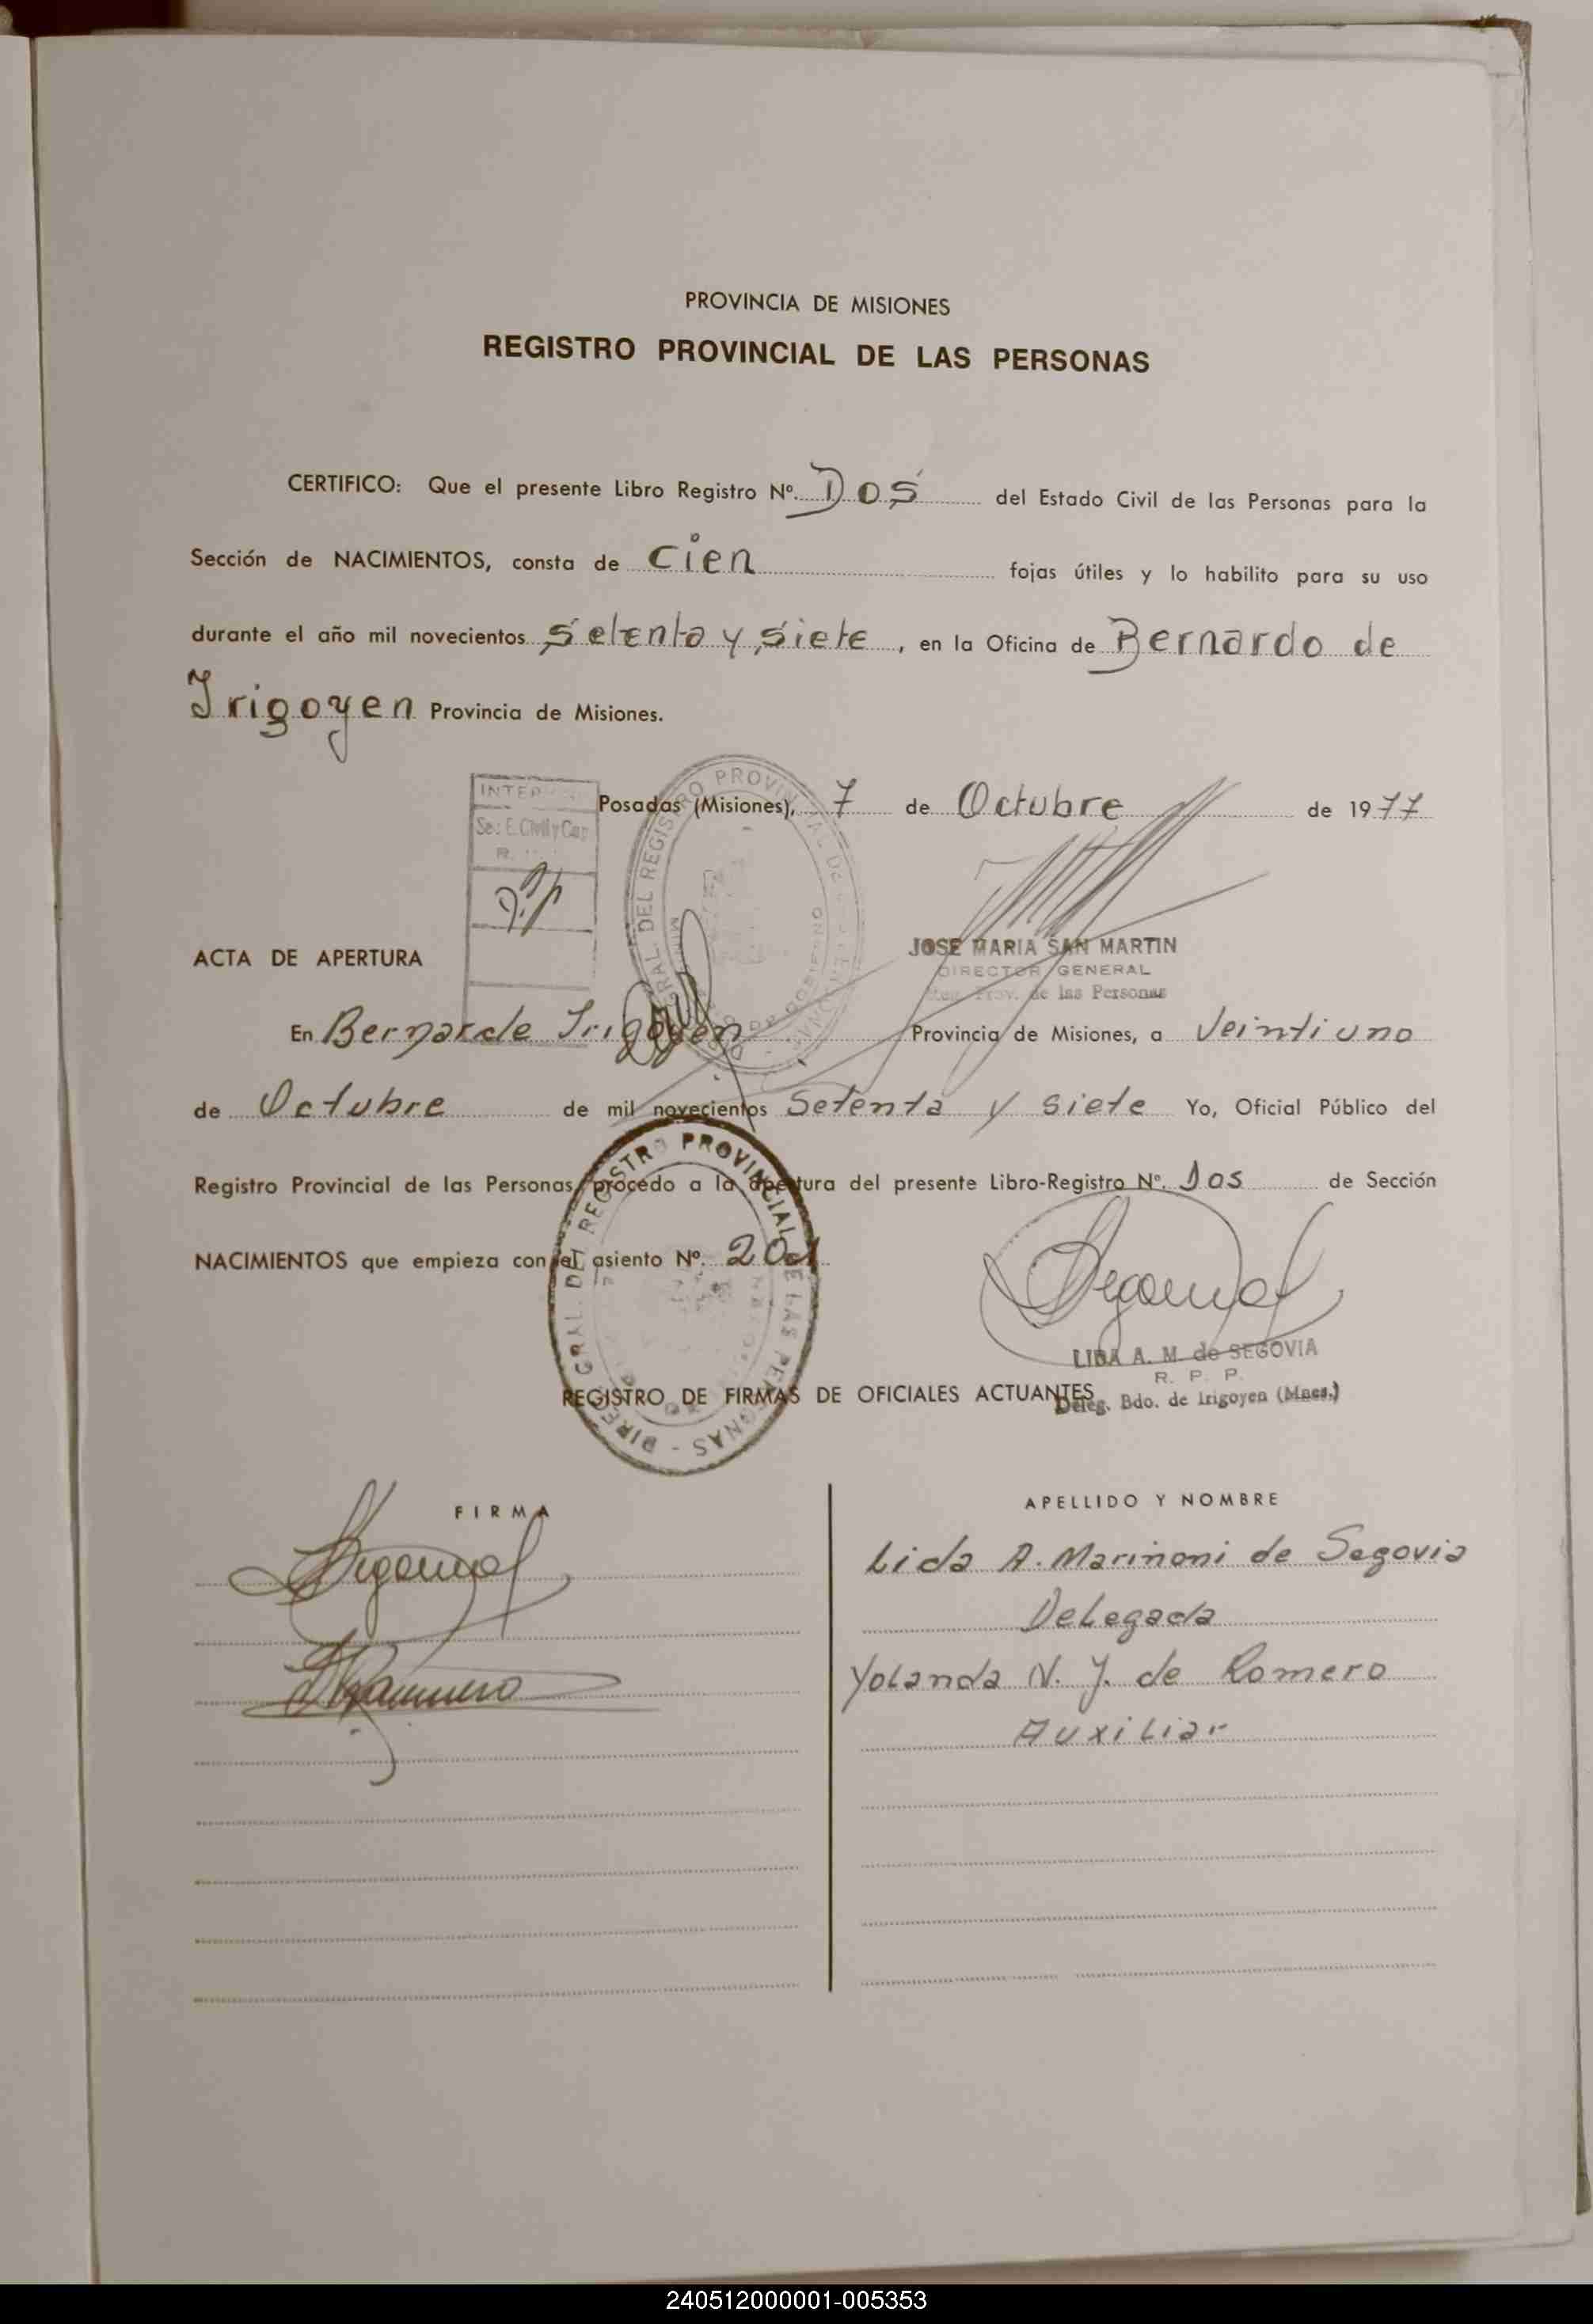 PROVINCIA DE MISIONES
REGISTRO PROVINCIAL DE LAS PERSONAS
CERTIFICO: Que el presente Libro Registro Nº. Dos del Estado Civil de las Personas para la
Sección de NACIMIENTOS, consta de Cien fojas útiles y lo habilito para su uso
durante el año mil novecientos Setenta y Siete, en la Oficina de Bernardo de
Irigoyen Provincia de Misiones.
Posadas (Misiones), 7 de Octubre de 1977
JOSE MARIA SAN MARTIN
DIRECTOR GENERAL
Reg. Prov. de las Personas
ACTA DE APERTURA
En Bernardo Irigoyen Provincia de Misiones, a Veintiuno
de Octubre de mil novecientos Setenta y Siete Yo, Oficial Público del
Registro Provincial de las Personas, procedo a la apertura del presente Libro-Registro Nº. Dos de Sección
NACIMIENTOS que empieza con el asiento Nº. 201
LIDA A. M. de SEGOVIA
R. P. P.
Deleg. Bdo. de Irigoyen (Mnes.)
REGISTRO DE FIRMAS DE OFICIALES ACTUANTES
FIRMA
APELLIDO Y NOMBRE
Lida A. Marinoni de Segovia
Delegada
Yolanda N. Y. de Romero
Auxiliar
240512000001-005353